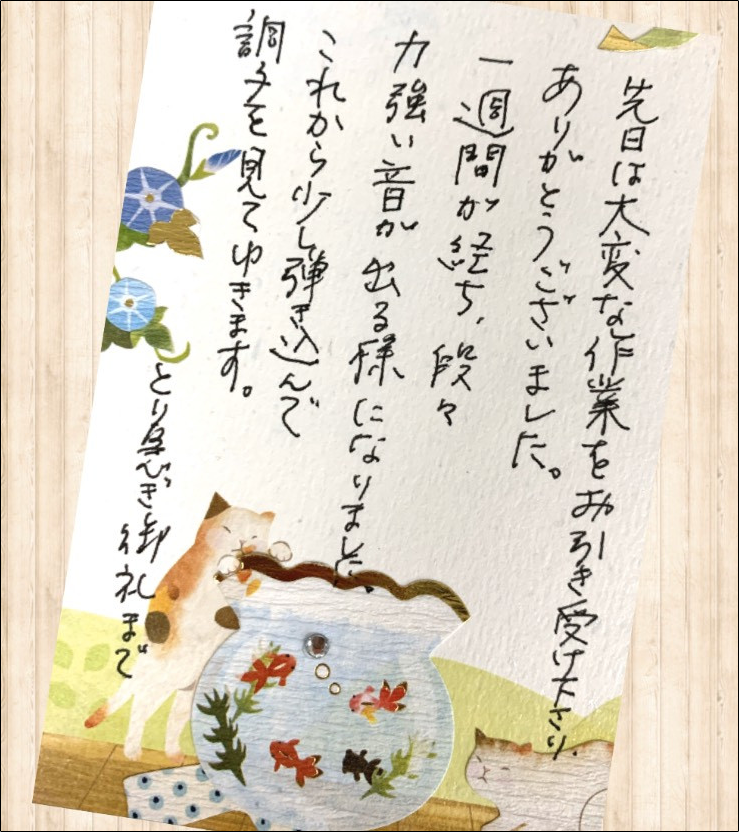 先日は大変な作業をお引き受け下さり、
ありがとうございました。
一週間が経ち、段々
力強い音が出る様になりました。
これから少し弾き込んで
調子を見てゆきます。
とり急ぎ御礼まで